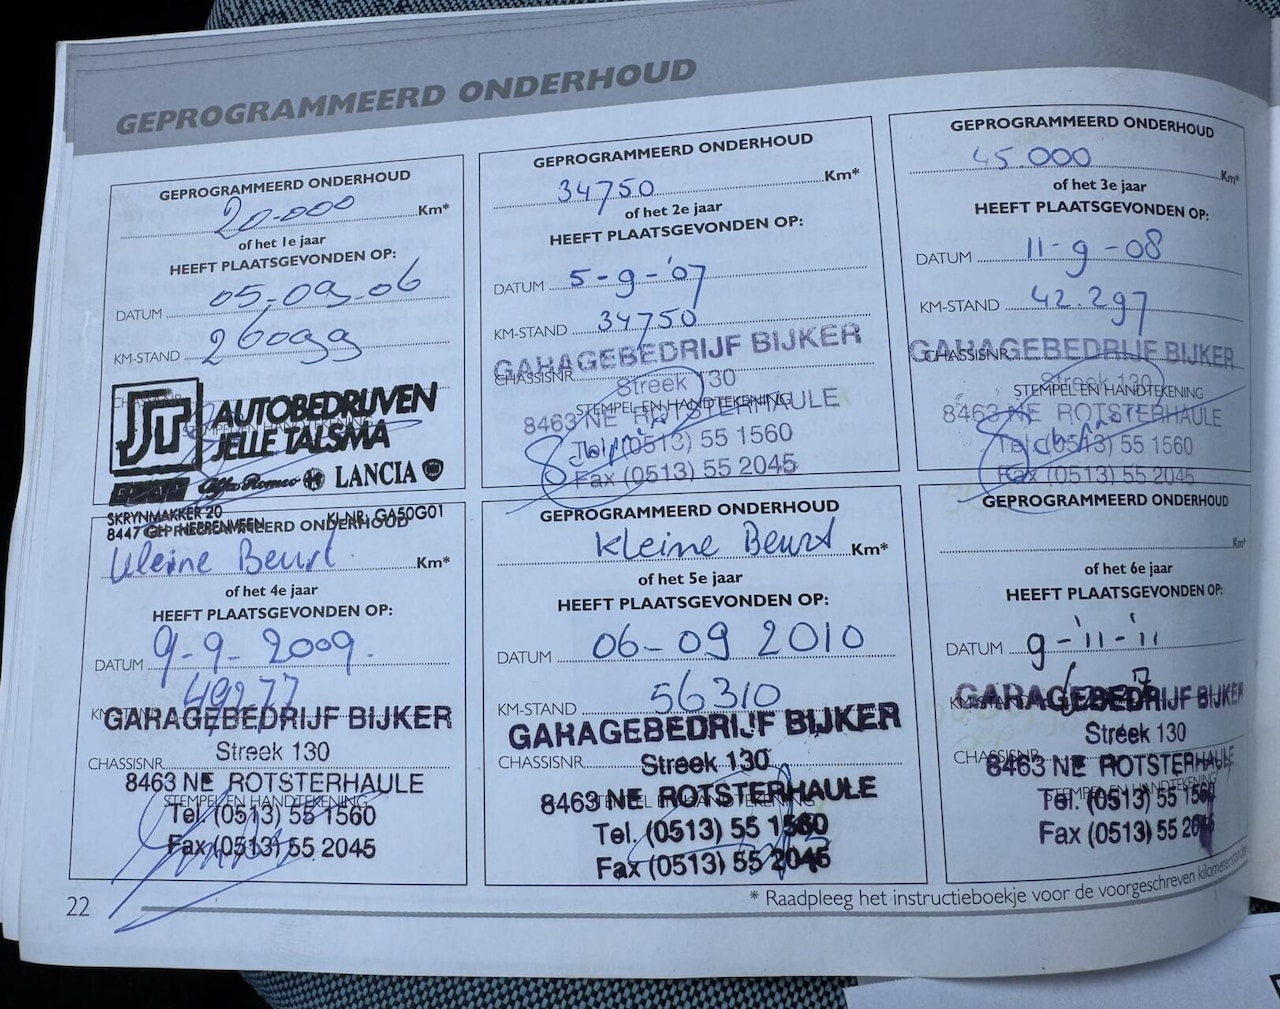 GEPROGRAMMEERD ONDERHOUD
GEPROGRAMMEERD ONDERHOUD
20.000 Km*
of het 1e jaar
HEEFT PLAATSGEVONDEN OP:
DATUM 05-09-06
KM-STAND 26099
CHASSISNR.
STEMPEL EN HANDTEKENING
AUTOBEDRIJVEN
JELLE TALSMA
Alfa Romeo LANCIA
SKRYNMAKKER 20
8447 GH HEERENVEEN KLNR. GA50G01
GEPROGRAMMEERD ONDERHOUD
34750 Km*
of het 2e jaar
HEEFT PLAATSGEVONDEN OP:
DATUM 5-9-'07
KM-STAND 34750
GARAGEBEDRIJF BIJKER
CHASSISNR.
Streek 130
STEMPEL EN HANDTEKENING
8463 NE ROTSTERHAULE
Tel. (0513) 55 1560
Fax (0513) 55 2045
GEPROGRAMMEERD ONDERHOUD
45.000 Km*
of het 3e jaar
HEEFT PLAATSGEVONDEN OP:
DATUM 11-9-08
KM-STAND 42.297
CHASSISNR.
GARAGEBEDRIJF BIJKER
Streek 130
STEMPEL EN HANDTEKENING
8463 NE ROTSTERHAULE
Tel. (0513) 55 1560
Fax (0513) 55 2045
GEPROGRAMMEERD ONDERHOUD
kleine Beurt Km*
of het 4e jaar
HEEFT PLAATSGEVONDEN OP:
DATUM 9-9-2009.
KM-STAND 49277
GARAGEBEDRIJF BIJKER
Streek 130
CHASSISNR.
8463 NE ROTSTERHAULE
STEMPEL EN HANDTEKENING
Tel. (0513) 55 1560
Fax (0513) 55 2045
GEPROGRAMMEERD ONDERHOUD
kleine Beurt Km*
of het 5e jaar
HEEFT PLAATSGEVONDEN OP:
DATUM 06-09 2010
KM-STAND 56310
GARAGEBEDRIJF BIJKER
CHASSISNR.
Streek 130
8463 NE ROTSTERHAULE
STEMPEL EN HANDTEKENING
Tel. (0513) 55 1560
Fax (0513) 55 2045
GEPROGRAMMEERD ONDERHOUD
Km*
of het 6e jaar
HEEFT PLAATSGEVONDEN OP:
DATUM 9-'11-'11
KM-STAND
GARAGEBEDRIJF BIJKER
Streek 130
CHASSISNR.
8463 NE ROTSTERHAULE
STEMPEL EN HANDTEKENING
Tel. (0513) 55 1560
Fax (0513) 55 2045
* Raadpleeg het instructieboekje voor de voorgeschreven kilometerstanden
22